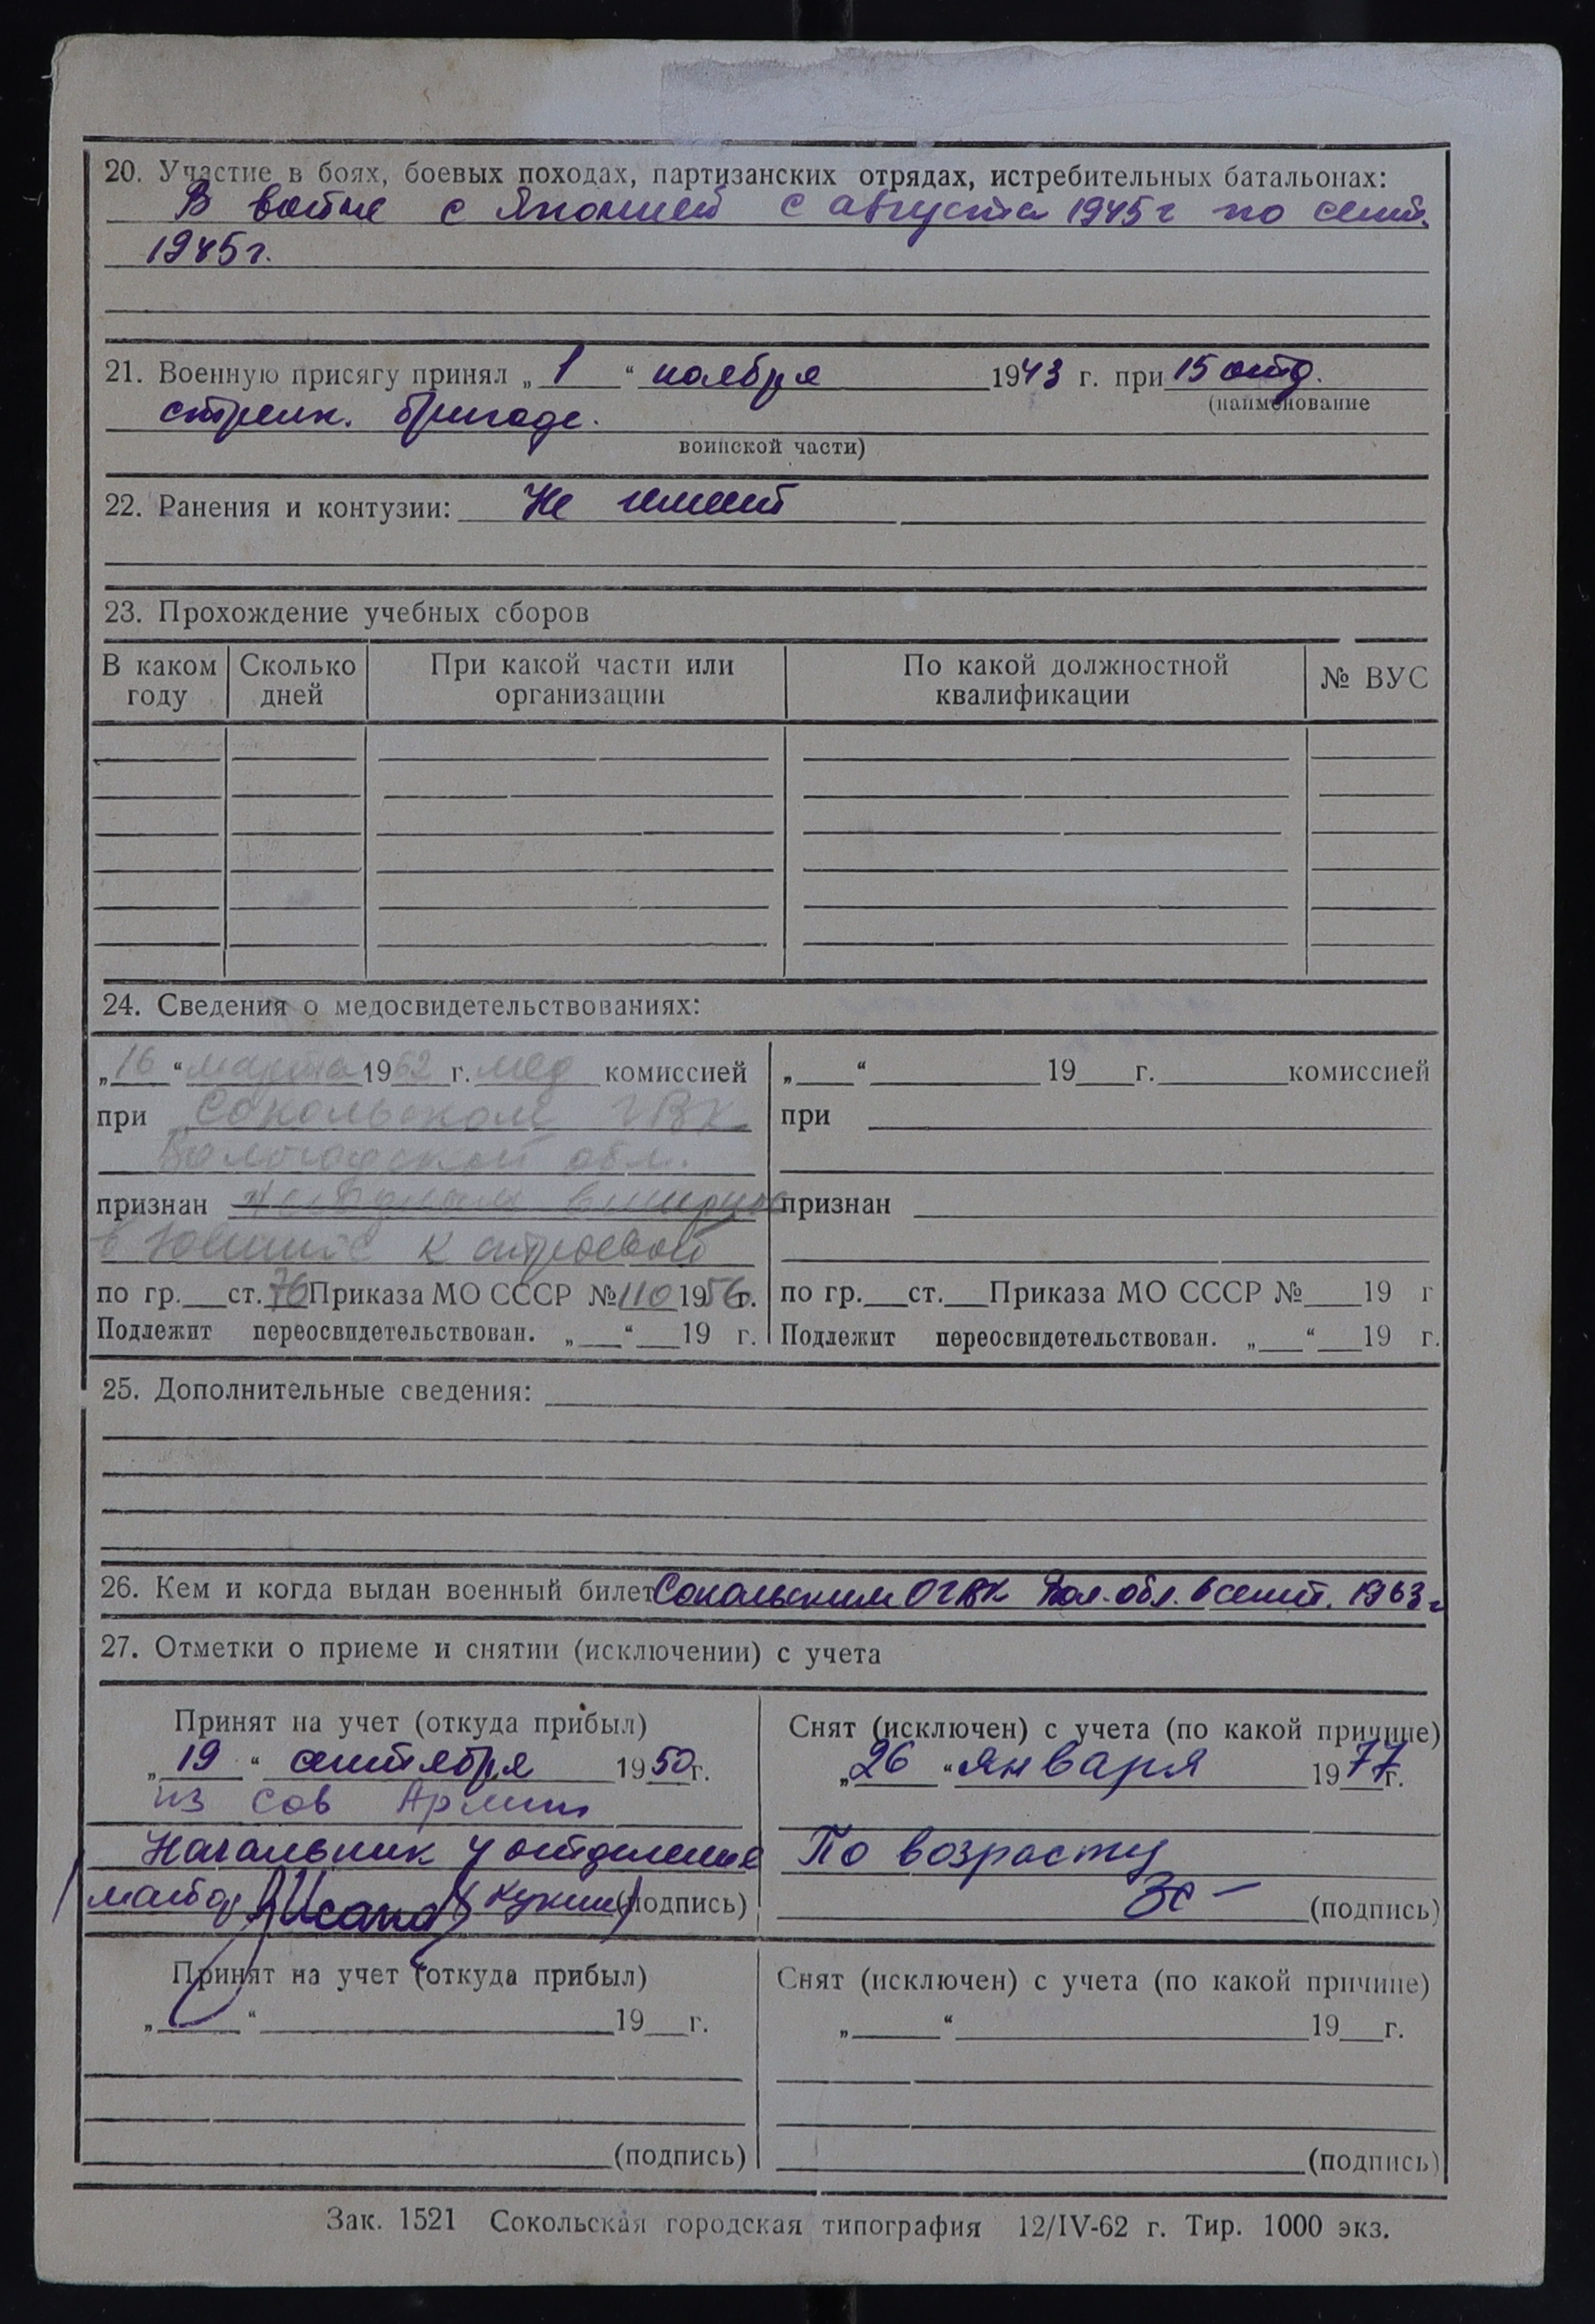 20. Участие в боях, боевых походах, партизанских отрядах, истребительных батальонах:
В войне с Японией с августа 1945 г по сент.
1945 г.
21. Военную присягу принял „ 1 “ ноября 1943 г. при 15 отд.
(наименование
стрелк. бригаде.
воинской части)
22. Ранения и контузии: Не имеет
23. Прохождение учебных сборов
В каком году
Сколько дней
При какой части или организации
По какой должностной квалификации
№ ВУС
24. Сведения о медосвидетельствованиях:
„16“ марта 1962 г. мед комиссией
при Сокольском ГВК
Вологодской обл.
признан
к строевой
по гр.___ст. 76 Приказа МО СССР № 110 1956 г.
Подлежит переосвидетельствован. „___“___19 г.
„____“__________19___г._______комиссией
при
признан
по гр.___ст.___Приказа МО СССР №____19 г
Подлежит переосвидетельствован. „___“___19 г.
25. Дополнительные сведения:
26. Кем и когда выдан военный билет Сокольским ОГВК Вол. обл. 6 сент. 1963 г
27. Отметки о приеме и снятии (исключении) с учета
Принят на учет (откуда прибыл)
„ 19 “ сентября 1950 г.
из Сов Армии
Начальник 4 отделения
майор (подпись)
Снят (исключен) с учета (по какой причине)
„26“ января 1977 г.
По возрасту
(подпись)
Принят на учет (откуда прибыл)
„_____“______________19___г.
(подпись)
Снят (исключен) с учета (по какой причине)
„_____“______________19___г.
(подпись)
Зак. 1521 Сокольская городская типография 12/IV-62 г. Тир. 1000 экз.